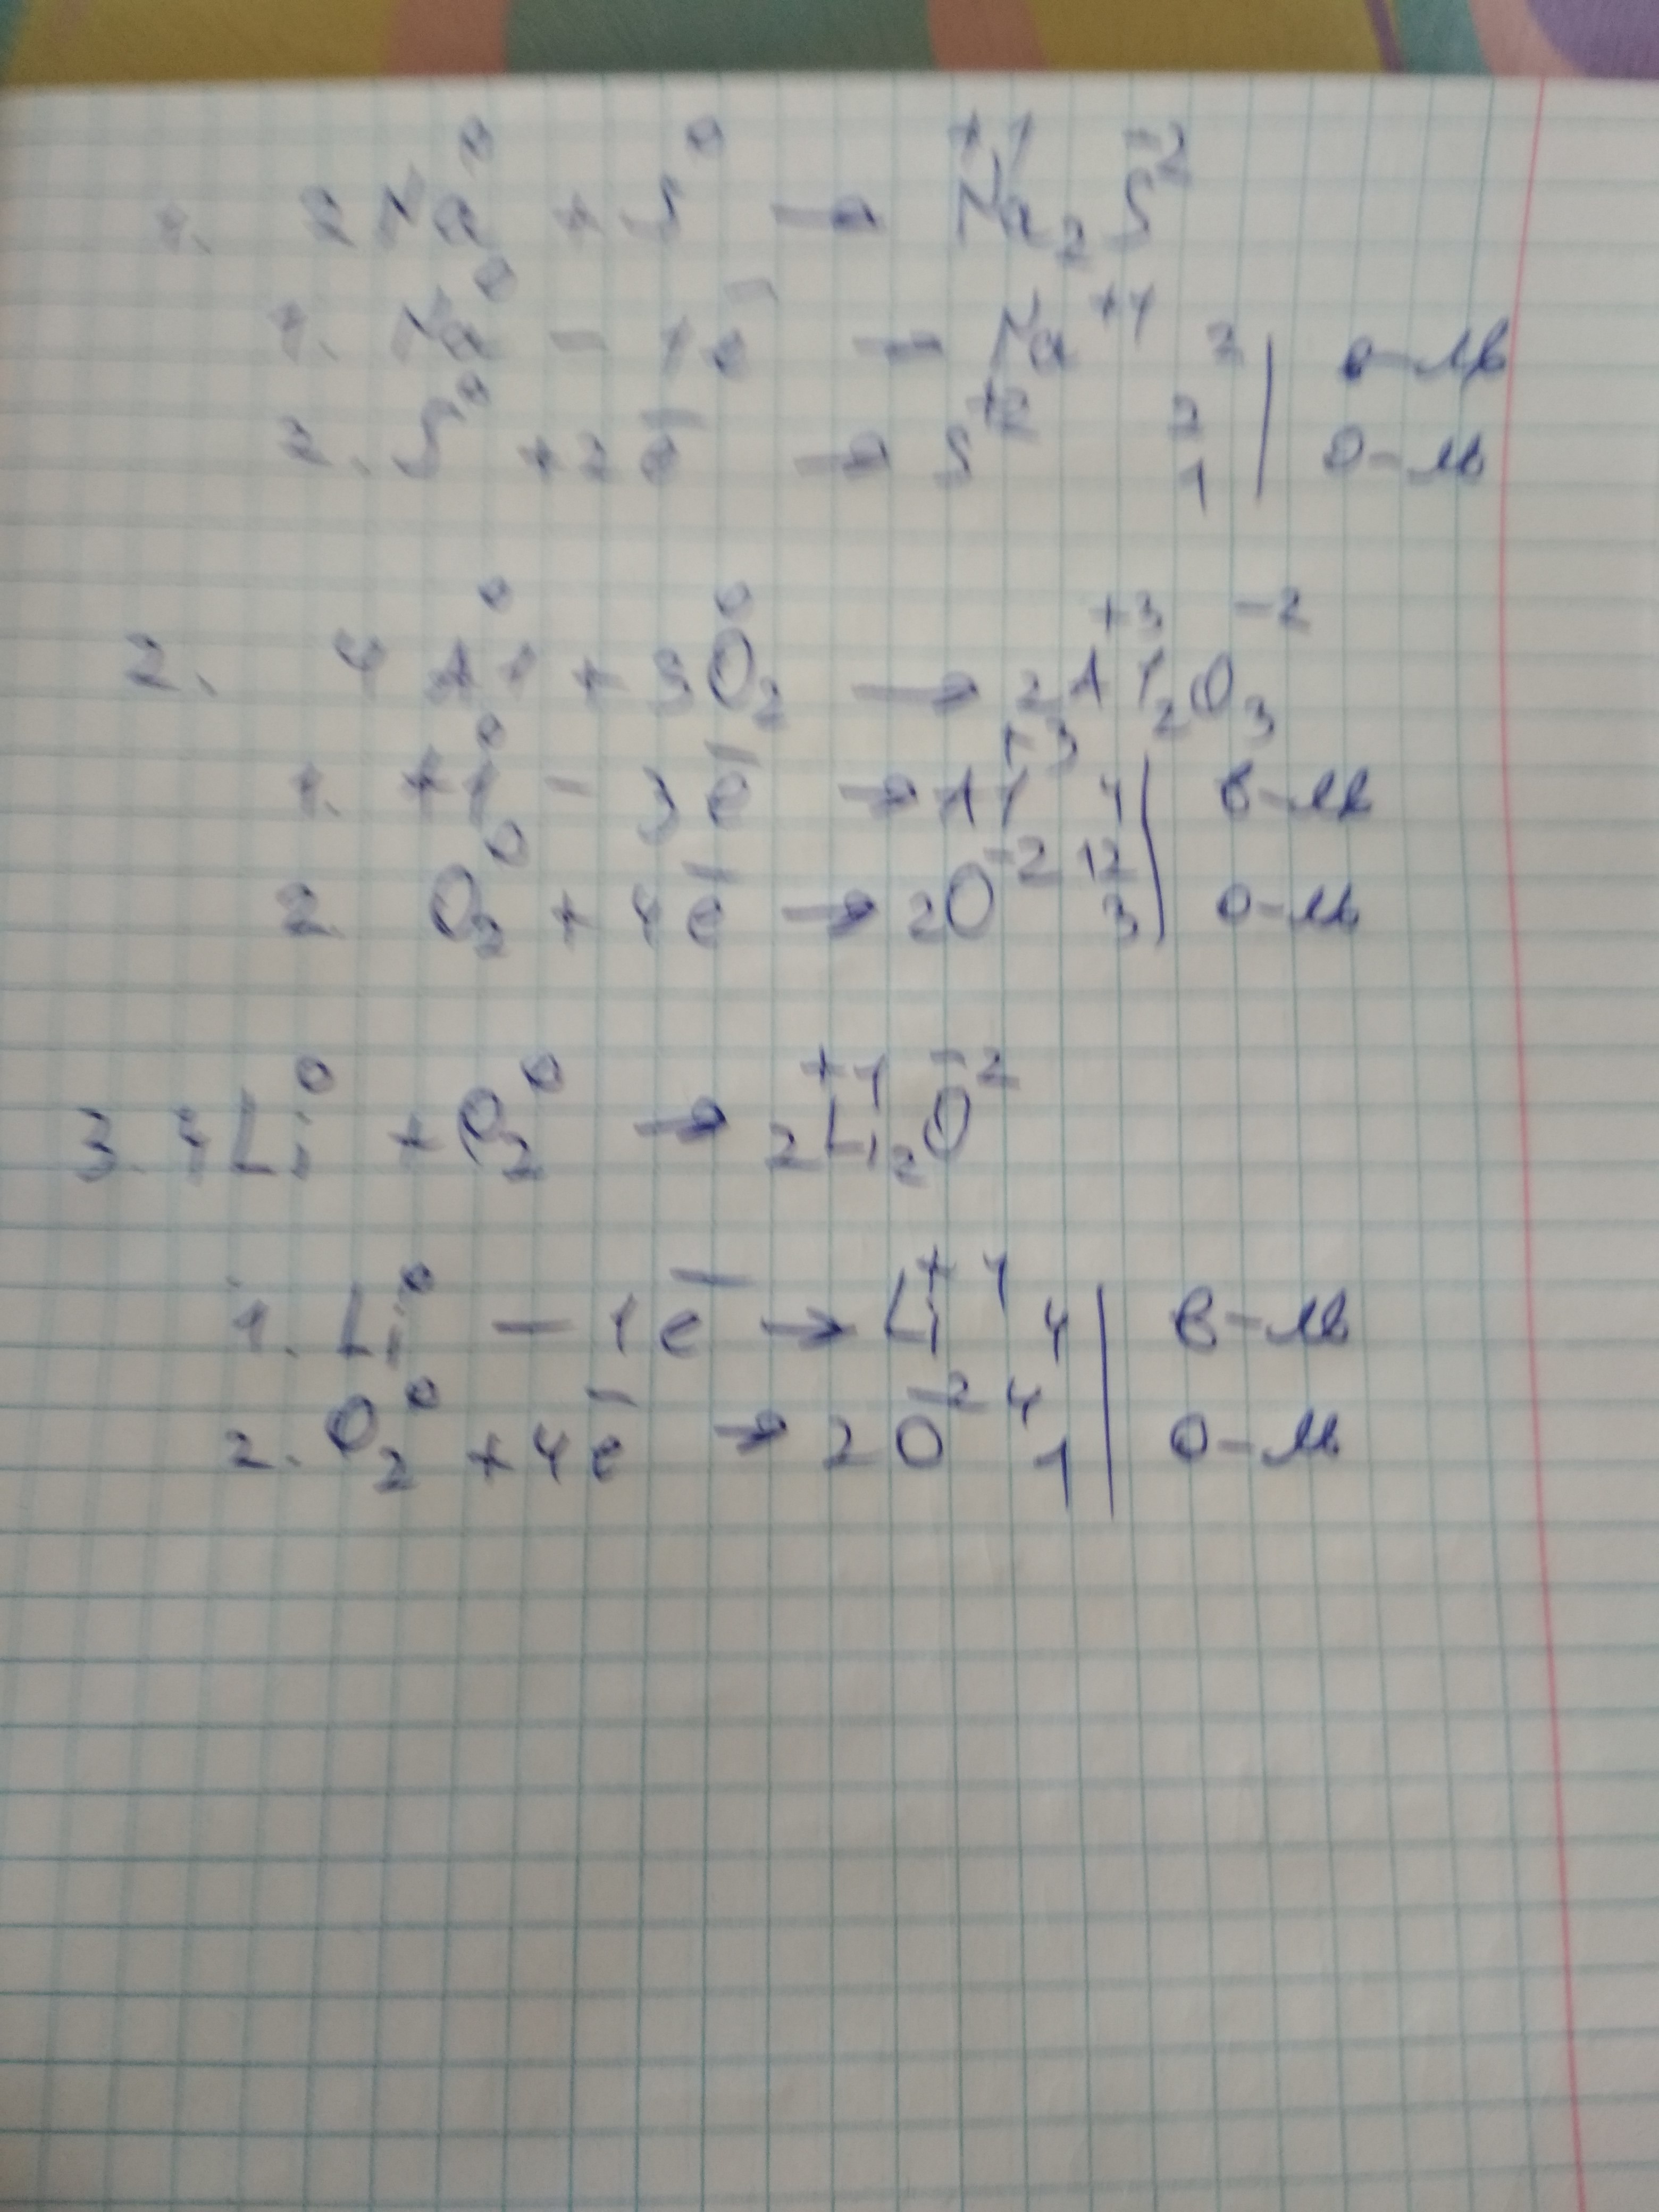 1. 2Na⁰ + S⁰ → Na₂⁺¹S⁻²
1. Na⁰ - 1ē → Na⁺¹ 2 | в-ль
2. S⁰ + 2ē → S⁺² 2 1 | о-ль
2. 4Al⁰ + 3O₂⁰ → 2Al₂⁺³O₃⁻²
1. Al⁰ - 3ē → Al⁺³ 4 | в-ль
2 O₂⁰ + 4ē → 2O⁻² 12 3 | о-ль
3. 4Li⁰ + O₂⁰ → 2Li₂⁺¹O⁻²
1. Li⁰ - 1ē → Li⁺¹ 4 | в-ль
2. O₂⁰ + 4ē → 2O⁻² 4 1 | о-ль